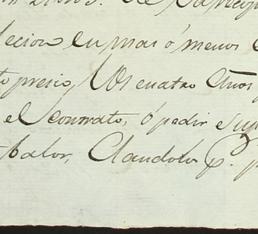 lecion en mas ó menos
to presio, Los cuatro Anos
el Contrato, ó pedir Sup
Valor, Dandolo p.